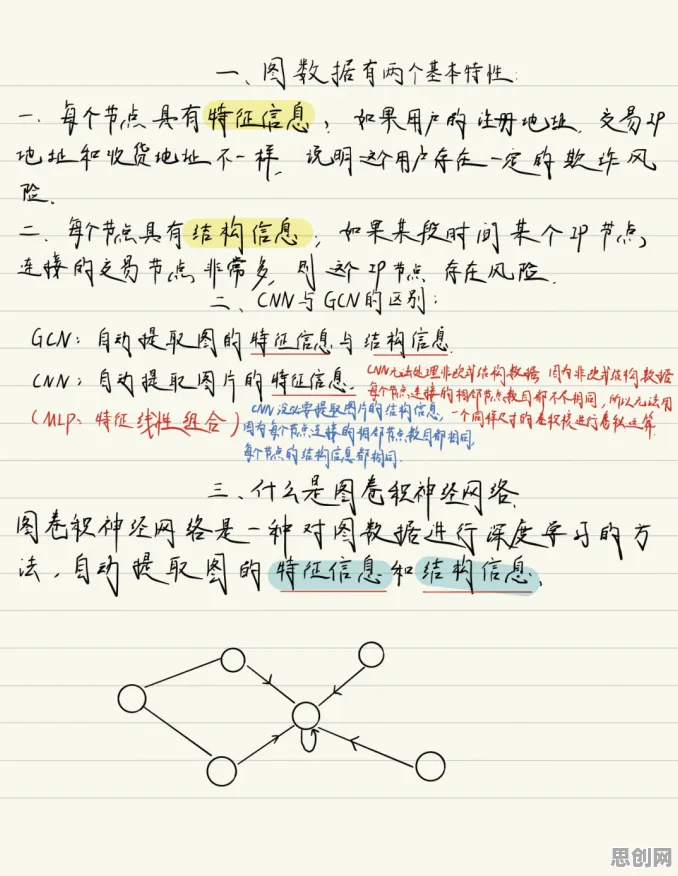 一、图数据有两个基本特性:
一. 每个节点具有特征信息, 如果用户的注册地址. 交易IP
地址和收货地址不一样, 说明这个用户存在一定的欺诈风
险.
二. 每个节点具有结构信息, 如果某段时间某个IP节点,
连接的交易节点非常多, 则这个IP节点存在风险.
二、CNN与GCN的区别:
GCN: 自动提取图的特征信息与结构信息.
CNN: 自动提取图片的特征信息.
CNN无法处理非欧式结构数据, 因为非欧式结构数据
每个节点连接的相邻节点数目都不不相同, 所以无法用
一个同样尺寸的卷积核进行卷积运算.
(MLP: 特征线性组合)
CNN没必要提取图片的结构信息,
因为每个节点连接的相邻节点数目都相同,
每个节点的结构信息都相同.
三、什么是图卷积神经网络.
图卷积神经网络是一种对图数据进行深度学习的方
法, 自动提取图的特征信息和结构信息.
思创网